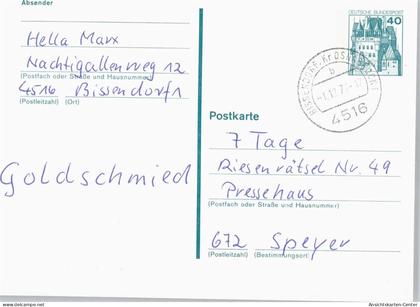 Absender
Hella Marx
Nachtigallenweg 12
(Postfach oder Straße und Hausnummer)
4516 Bissendorf 1
(Postleitzahl) (Ort)
Goldschmied
DEUTSCHE BUNDESPOST
40
b
4516
Postkarte
7 Tage
Riesenrätsel Nr. 49
Pressehaus
(Postfach oder Straße und Hausnummer)
672 Speyer
(Postleitzahl) (Bestimmungsort)
Ansichtskarten-Center